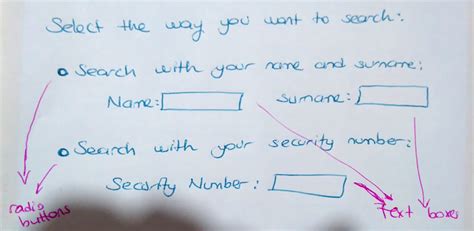 Select the way you want to search:
Search with your name and surname:
Name: Surname:
Search with your security number:
Security Number:
radio buttons
Text boxes